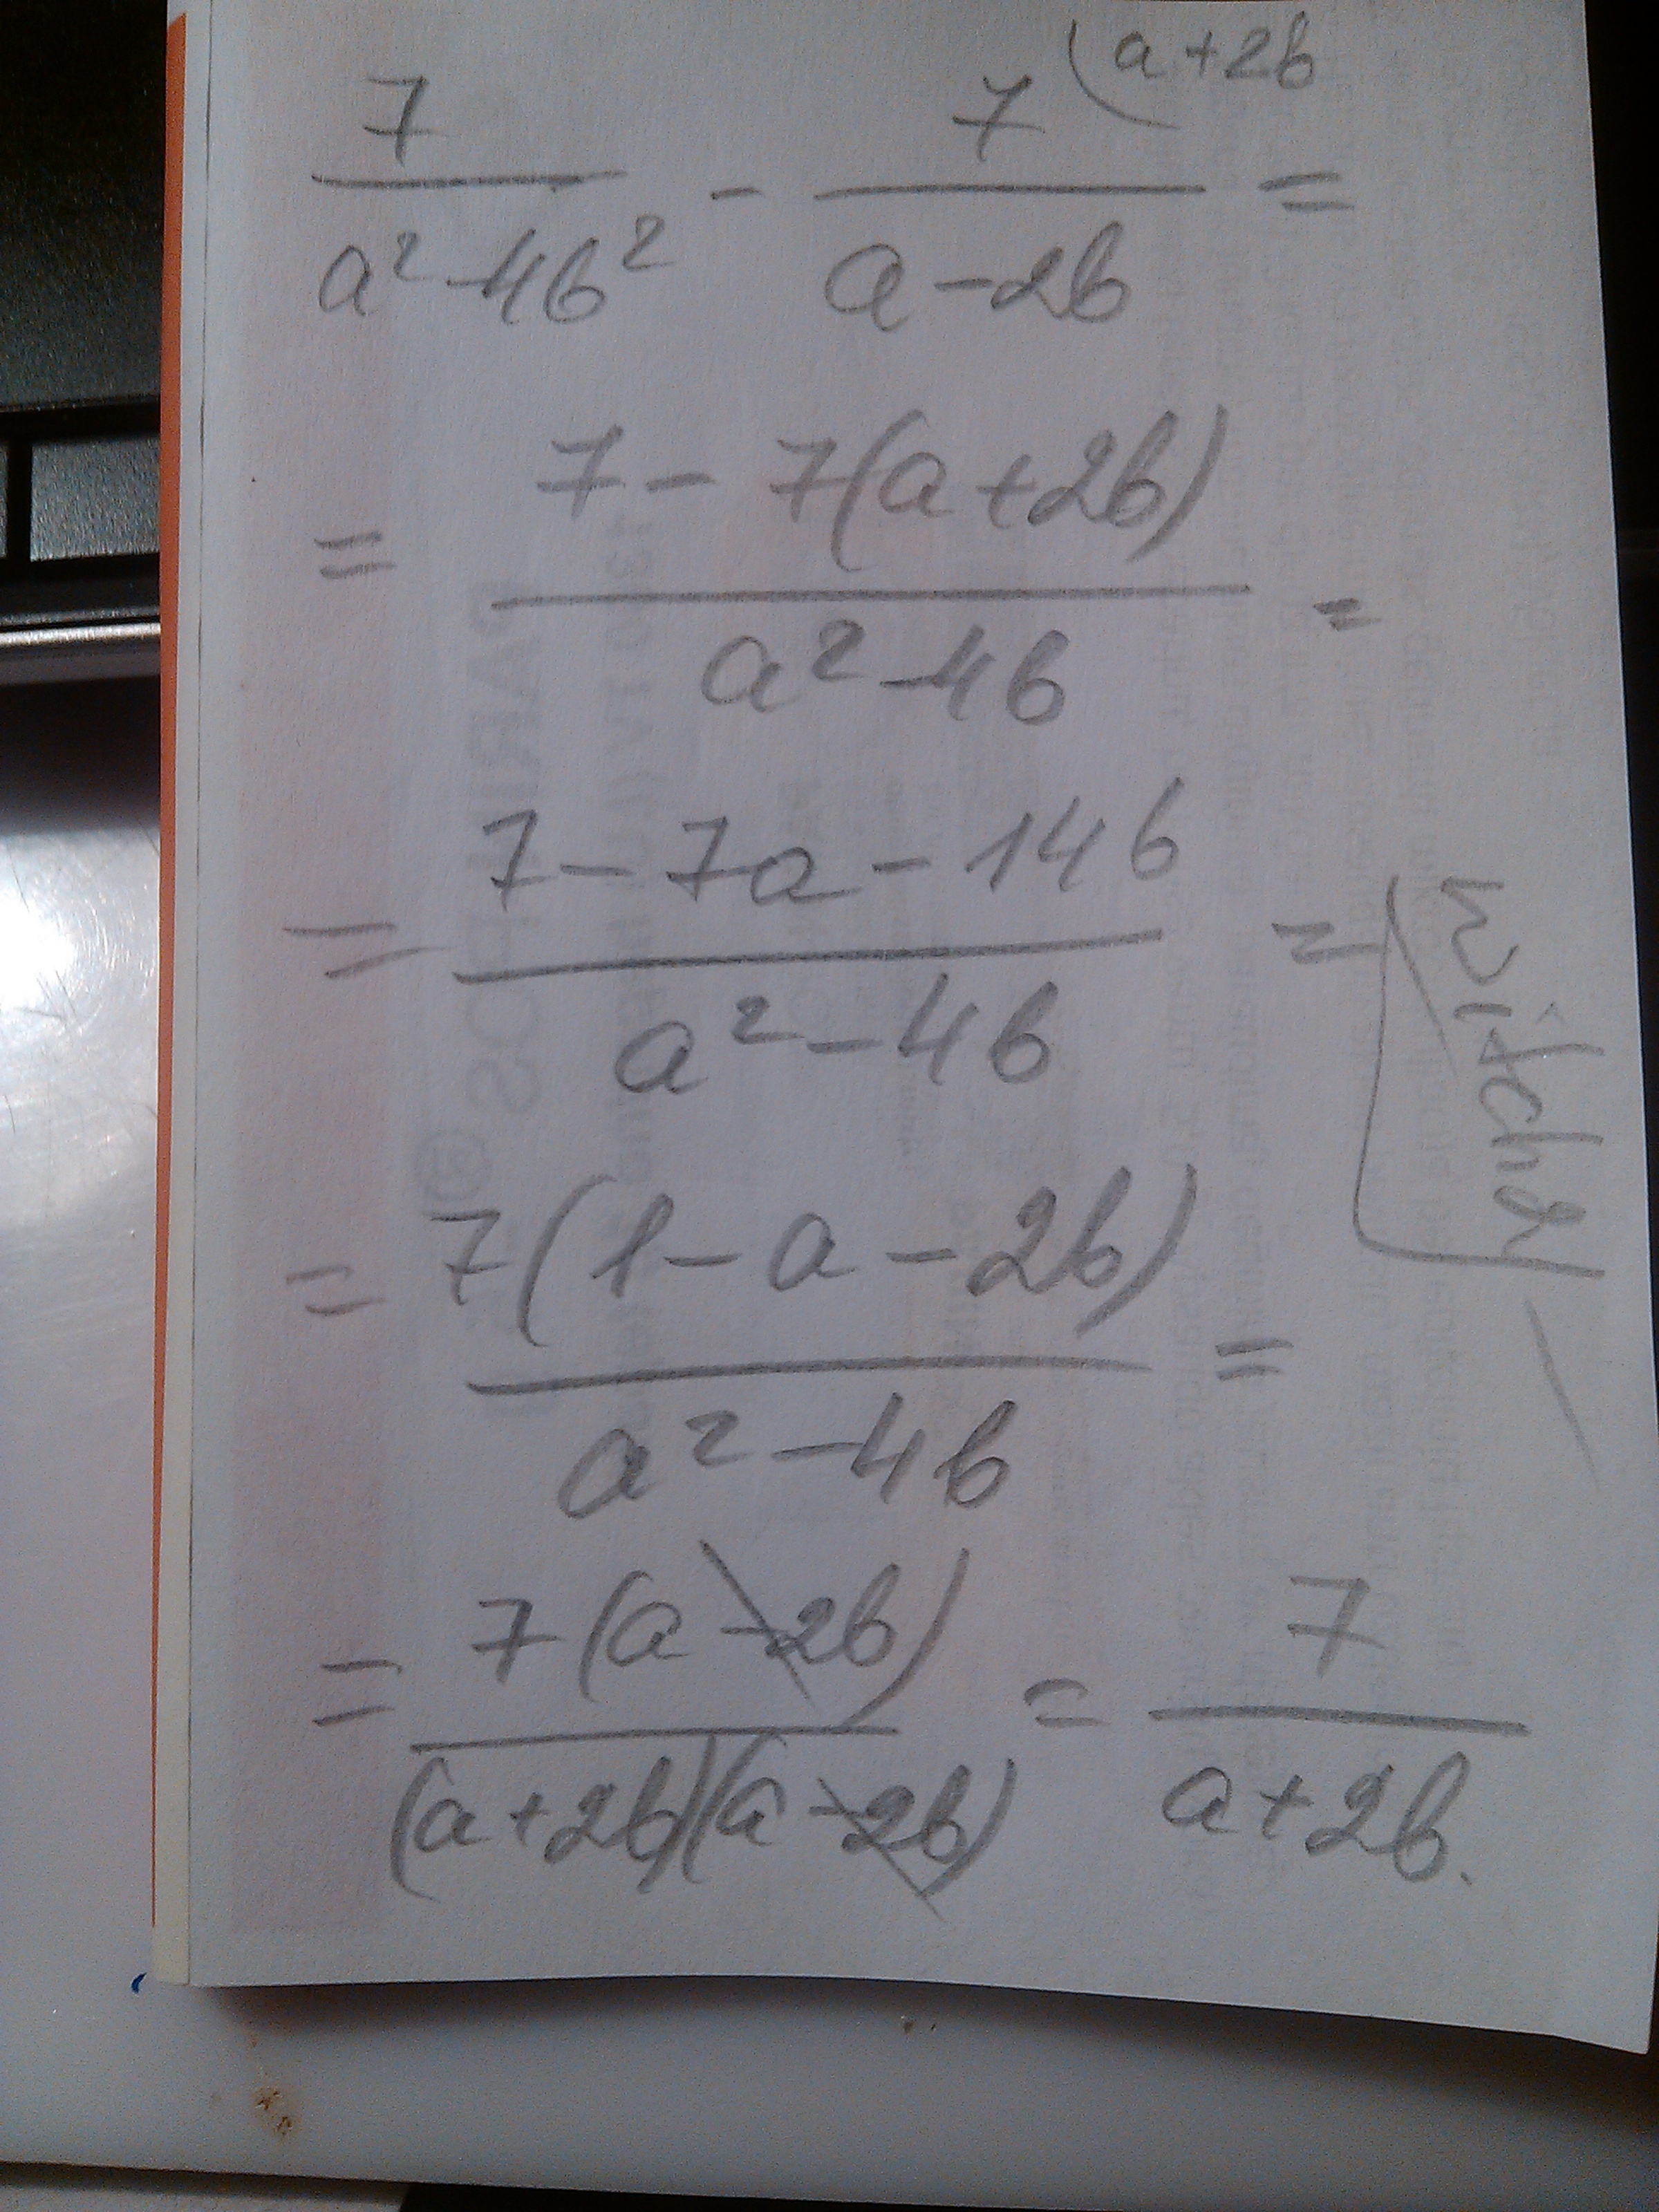 7/(a² - 4b²) - 7/(a - 2b) (a + 2b =
= (7 - 7(a + 2b))/(a² - 4b) =
= (7 - 7a - 14b)/(a² - 4b) =
= 7(1 - a - 2b)/(a² - 4b) =
= 7(a - 2b)/((a + 2b)(a - 2b)) = 7/(a + 2b).